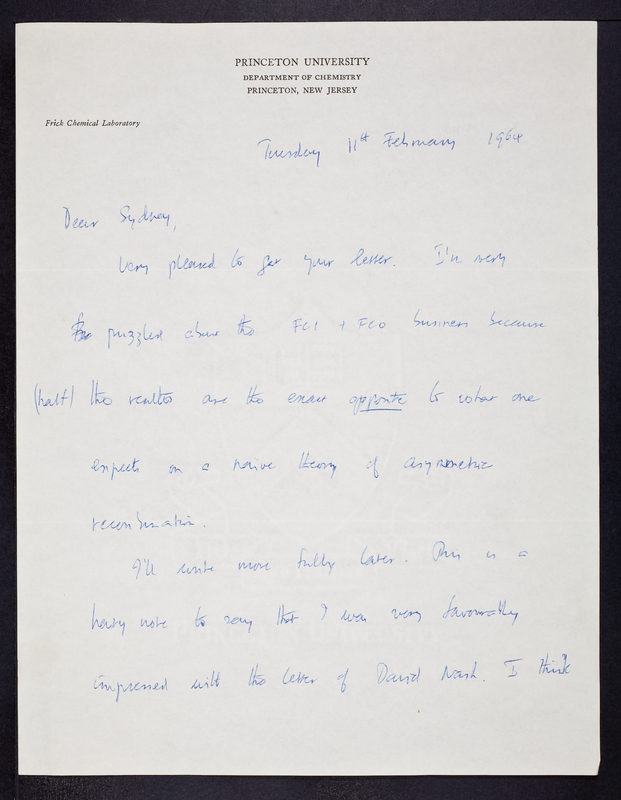 PRINCETON UNIVERSITY
DEPARTMENT OF CHEMISTRY
PRINCETON, NEW JERSEY
Frick Chemical Laboratory
Tuesday 11th February 1964
Dear Sydney,
Very pleased to get your letter. I'm very
puzzled about the FC1 + FC0 business because
(half) the results are the exact opposite to what one
expects on a naive theory of asymmetric
recombination.
I'll write more fully later. This is a
hasty note to say that I was very favourably
impressed with the letter of David Nash. I think